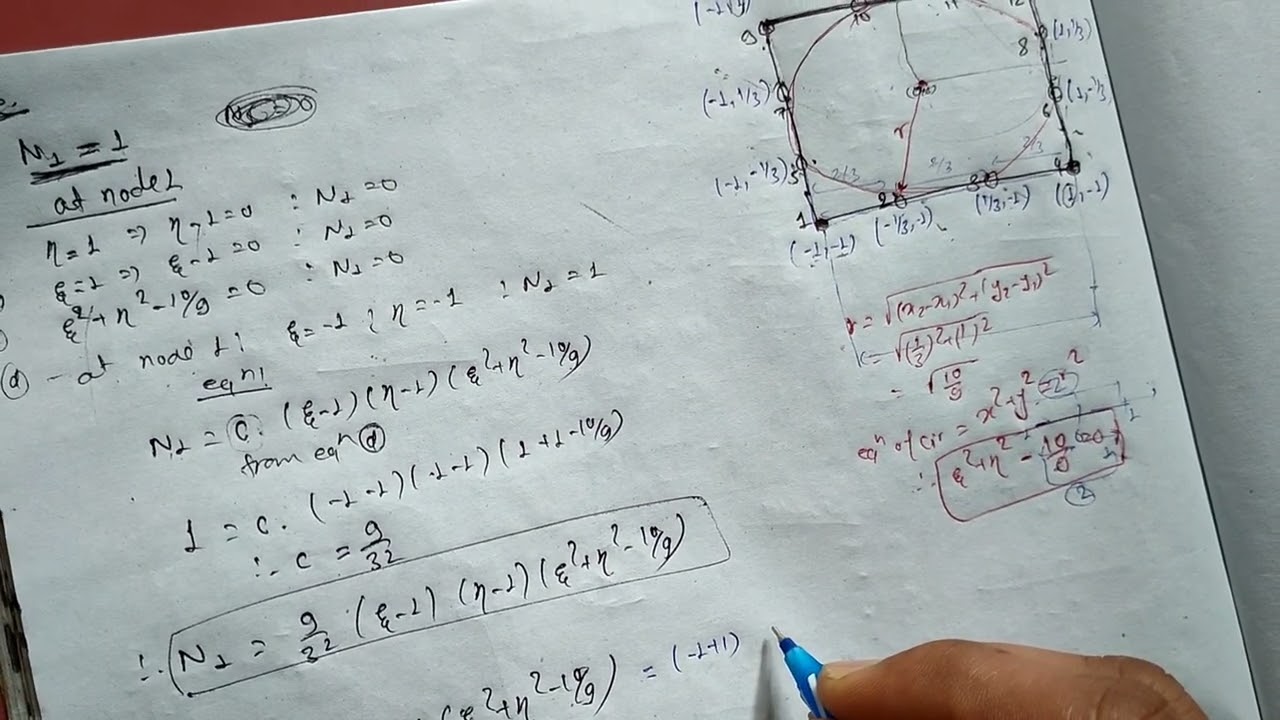 N₁ = 1
at node 1
η=1 ⇒ η-1=0 : N₁ =0
ξ=1 ⇒ ξ-1=0 : N₁ =0
ξ²+η²-10/9=0 : N₁=0
(d) - at node 1 : ξ=-1 ; η=-1 : N₁=1
eqⁿ!
N₁ = C. (ξ-1)(η-1)(ξ²+η²-10/9)
from eqⁿ (d)
1 = C. (-1-1)(-1-1)(1+1-10/9)
∴ C = 9/32
∴ N₁ = 9/32 (ξ-1) (η-1)(ξ²+η²-10/9)
ξ²+η²-10/9) = (-1+1)
9 10 11 12
(-1, 1/3) 7 8 (1, 1/3)
(-1, -1/3) 5 6 (1, -1/3)
r
2/3 2/3 2/3
1 2 3 4
(-1,-1) (-1/3,-1) (1/3,-1) (1,-1)
r = √(x₂-x₁)²+(y₂-y₁)²
= √(1/3)²+(1)²
= √10/9
eqⁿ of cir = x²+y²=r²
∴ ξ²+η² - 10/9 =0
(2)